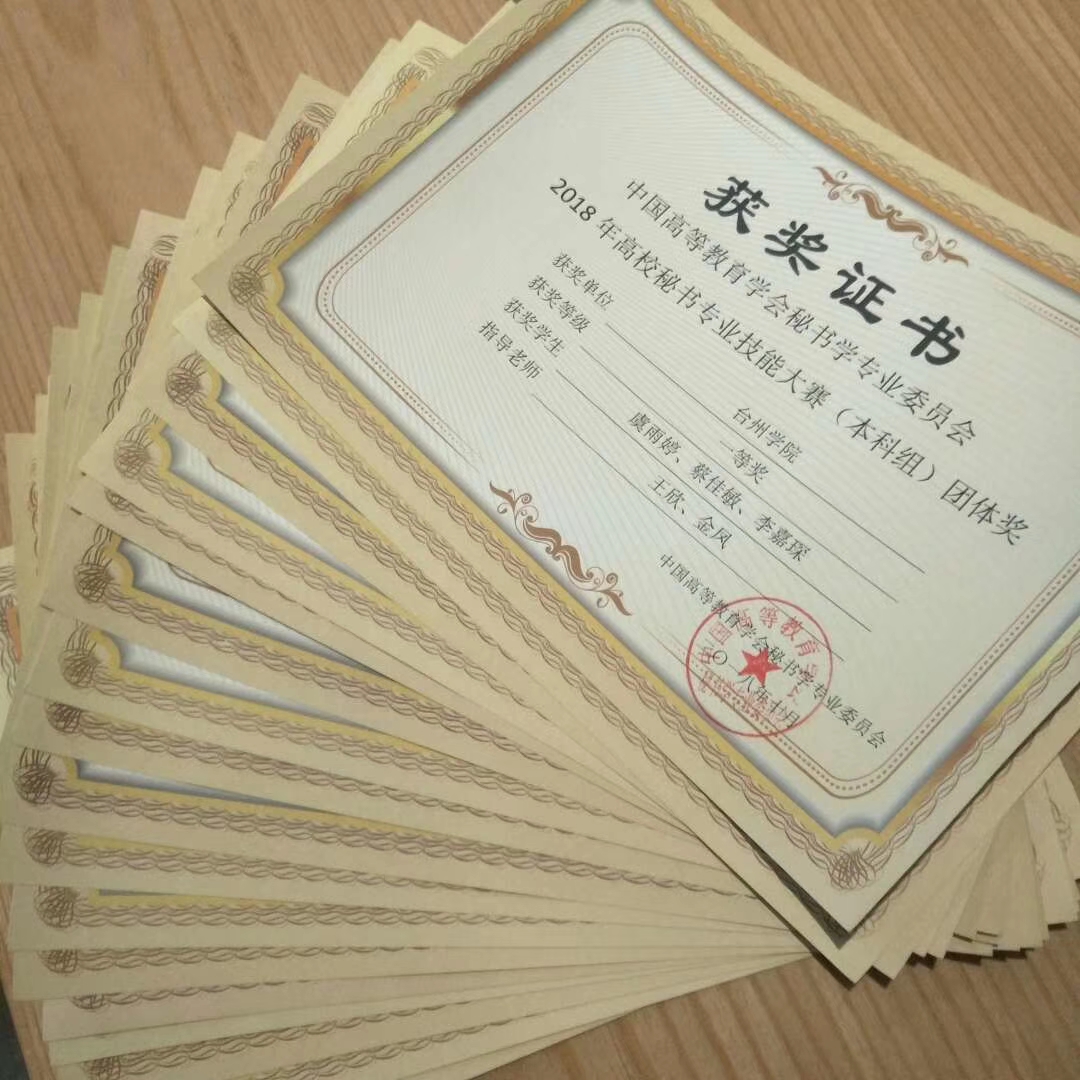 获奖证书
中国高等教育学会秘书学专业委员会
2018年高校秘书专业技能大赛（本科组）团体奖
获奖单位 台州学院
获奖等级 一等奖
获奖学生 虞雨婷、蔡佳敏、李嘉琛
指导老师 王欣、金凤
中国高等教育学会秘书学专业委员会
二〇一八年十月